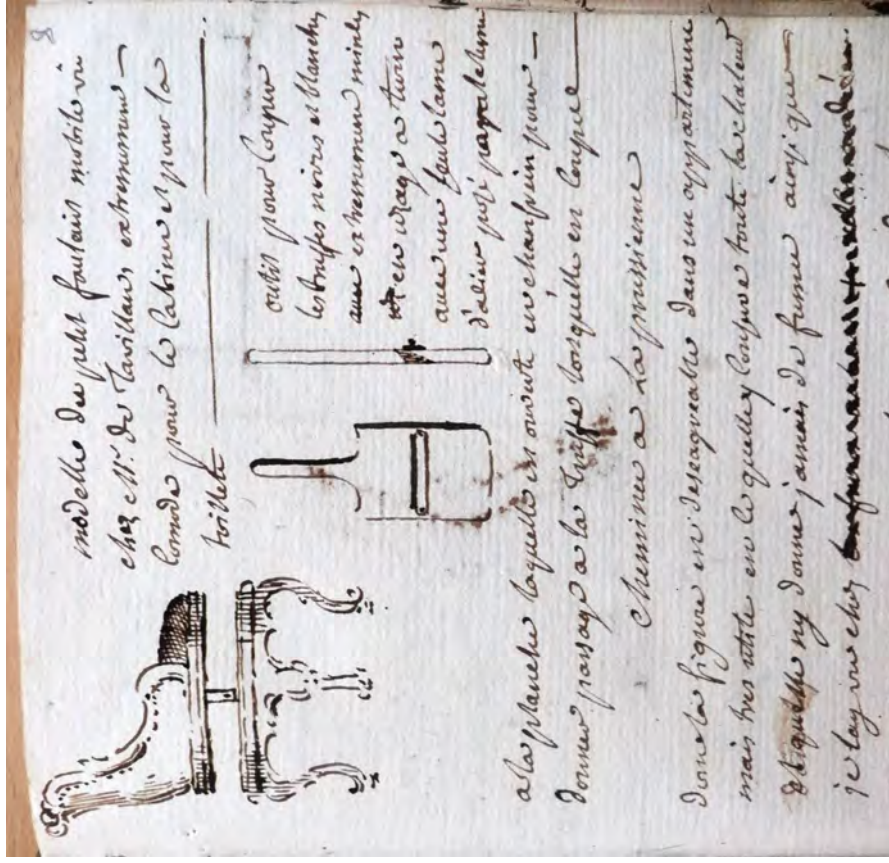 8
modelle de petit fauteuil mobile vû
chez Mr. de Tavillaux extremement
comode pour le Cabinet et pour la
toillette
outil pour couper
les truffes noires et blanches
extremement minles
en usage a turin
avec une seule lame
d'acier posé
a la planche laquelle est ouverte en chanfrein pour
donner passage a la truffe lorsquelle est coupeé
Cheminée a La prussienne
dont la figure est desagreable dans un appartement
mais tres utile en ce quelle y conserve toute la chaleur
et quelle ny donne jamais de fumée ainsi que
je lay vue chez